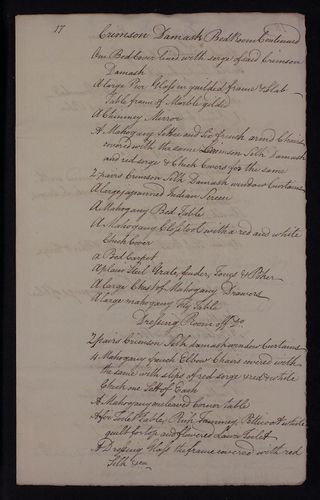 17
Crimson Damask Bed Room Continued
One Bed Cover lined with serge of said Crimson
Damask
A large Pier Glass in guilded frame & Slab
Table frame of Marble gilded
A Chimney Mirror
A Mahogany Settee and Six french armd Chairs
covered with the same Crimson Silk Damask
and red serge & Check Covers for the same
2 pairs Crimson Silk Damask window Curtains
A large japanned Indian Screen
A Mahogany Bed Table
A Mahogany Close stool with a red and white
Check Cover
a Bed Carpet
A plain Steel Grate, fender, Tongs & Poker
A large Chest of Mahogany Drawers
A large mahogany Fly Table
Dressing Room off Do.
2 pairs Crimson Silk damask window Curtains
4 Mahogany french Elbow Chairs covered with
the same with slips of red serge & red & white
Check one Sett of Each
A Mahogany Corner table
A Toilet Table, Petticoat white
quilt for top and flowered Lawn Toilet
A Dressing Glass the frame covered with red
Silk